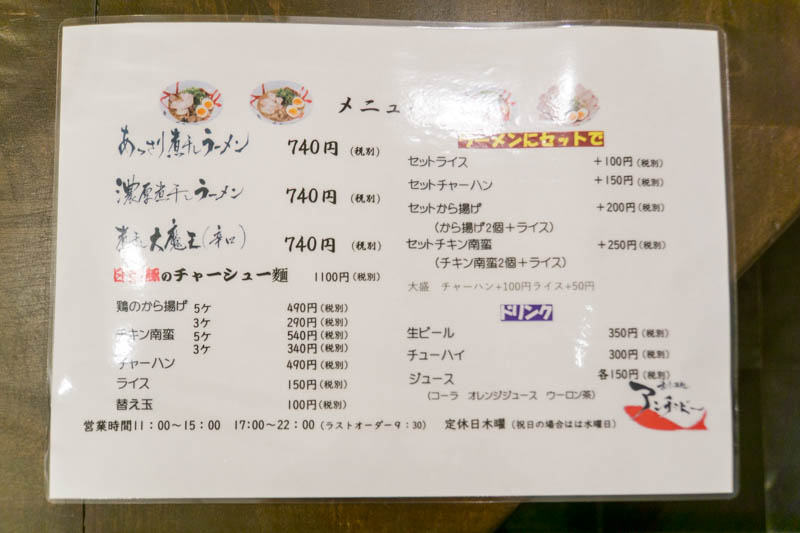 メニュ
あっさり煮干しラーメン 740円 (税別)
濃厚煮干しラーメン 740円 (税別)
煮干し大魔王(辛口) 740円 (税別)
のチャーシュー麺 1100円(税別)
鶏のから揚げ 5ケ 490円(税別)
3ケ 290円(税別)
チキン南蛮 5ケ 540円(税別)
3ケ 340円(税別)
チャーハン 490円(税別)
ライス 150円(税別)
替え玉 100円(税別)
ラーメンにセットで
セットライス +100円(税別)
セットチャーハン +150円(税別)
セットから揚げ +200円(税別)
(から揚げ2個+ライス)
セットチキン南蛮 +250円(税別)
(チキン南蛮2個+ライス)
大盛 チャーハン+100円ライス+50円
ドリンク
生ビール 350円(税別)
チューハイ 300円(税別)
ジュース 各150円(税別)
(コーラ オレンジジュース ウーロン茶)
営業時間11:00~15:00 17:00~22:00(ラストオーダー9:30) 定休日木曜(祝日の場合はは水曜日)